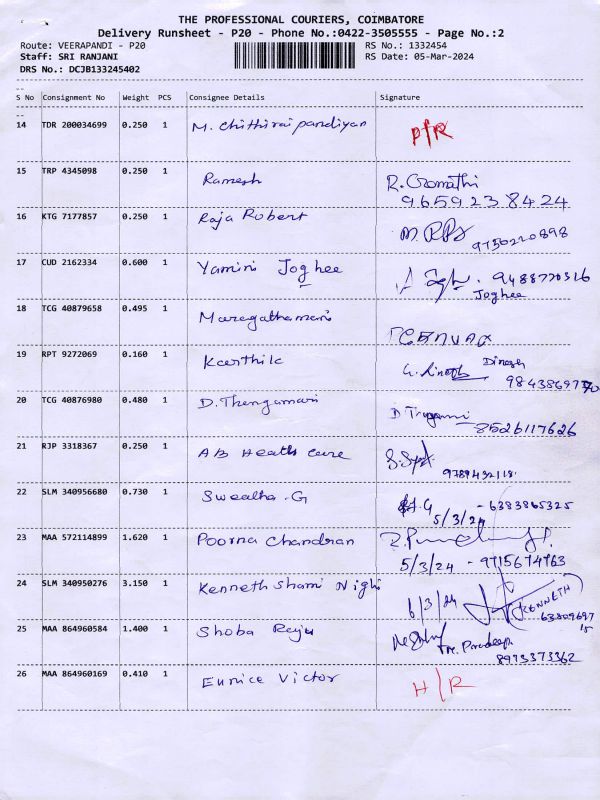 THE PROFESSIONAL COURIERS, COIMBATORE
Delivery Runsheet - P20 - Phone No.:0422-3505555 - Page No.:2
Route: VEERAPANDI - P20 RS No.: 1332454
Staff: SRI RANJANI RS Date: 05-Mar-2024
DRS No.: DCJB133245402
S No Consignment No Weight PCS Consignee Details Signature
14 TDR 200034699 0.250 1 M. Chithirai pandiyan P/R
15 TRP 4345098 0.250 1 Ramesh R. Gomathi
9659238424
16 KTG 7177857 0.250 1 Raja Robert
9750220898
17 CUD 2162334 0.600 1 Yamini Joghee 9488770316
Joghee
18 TCG 40879658 0.495 1 Maragathamani
19 RPT 9272069 0.160 1 Karthik Dinesh
20 TCG 40876980 0.480 1 D. Thengamani
8526117626
21 RJP 3318367 0.250 1 AB Heath care
22 SLM 340956680 0.730 1 Swealha .G - 6383865325
5/3/24
23 MAA 572114899 1.620 1 Poorna Chandran
5/3/24 - 9715674763
24 SLM 340950276 3.150 1 Kenneth Shami Nighi 6/3/24 KENNETH
63809697
15
25 MAA 864960584 1.400 1 Shoba Raju
M. Pradeep
8973373362
26 MAA 864960169 0.410 1 Eunice Victor H/R